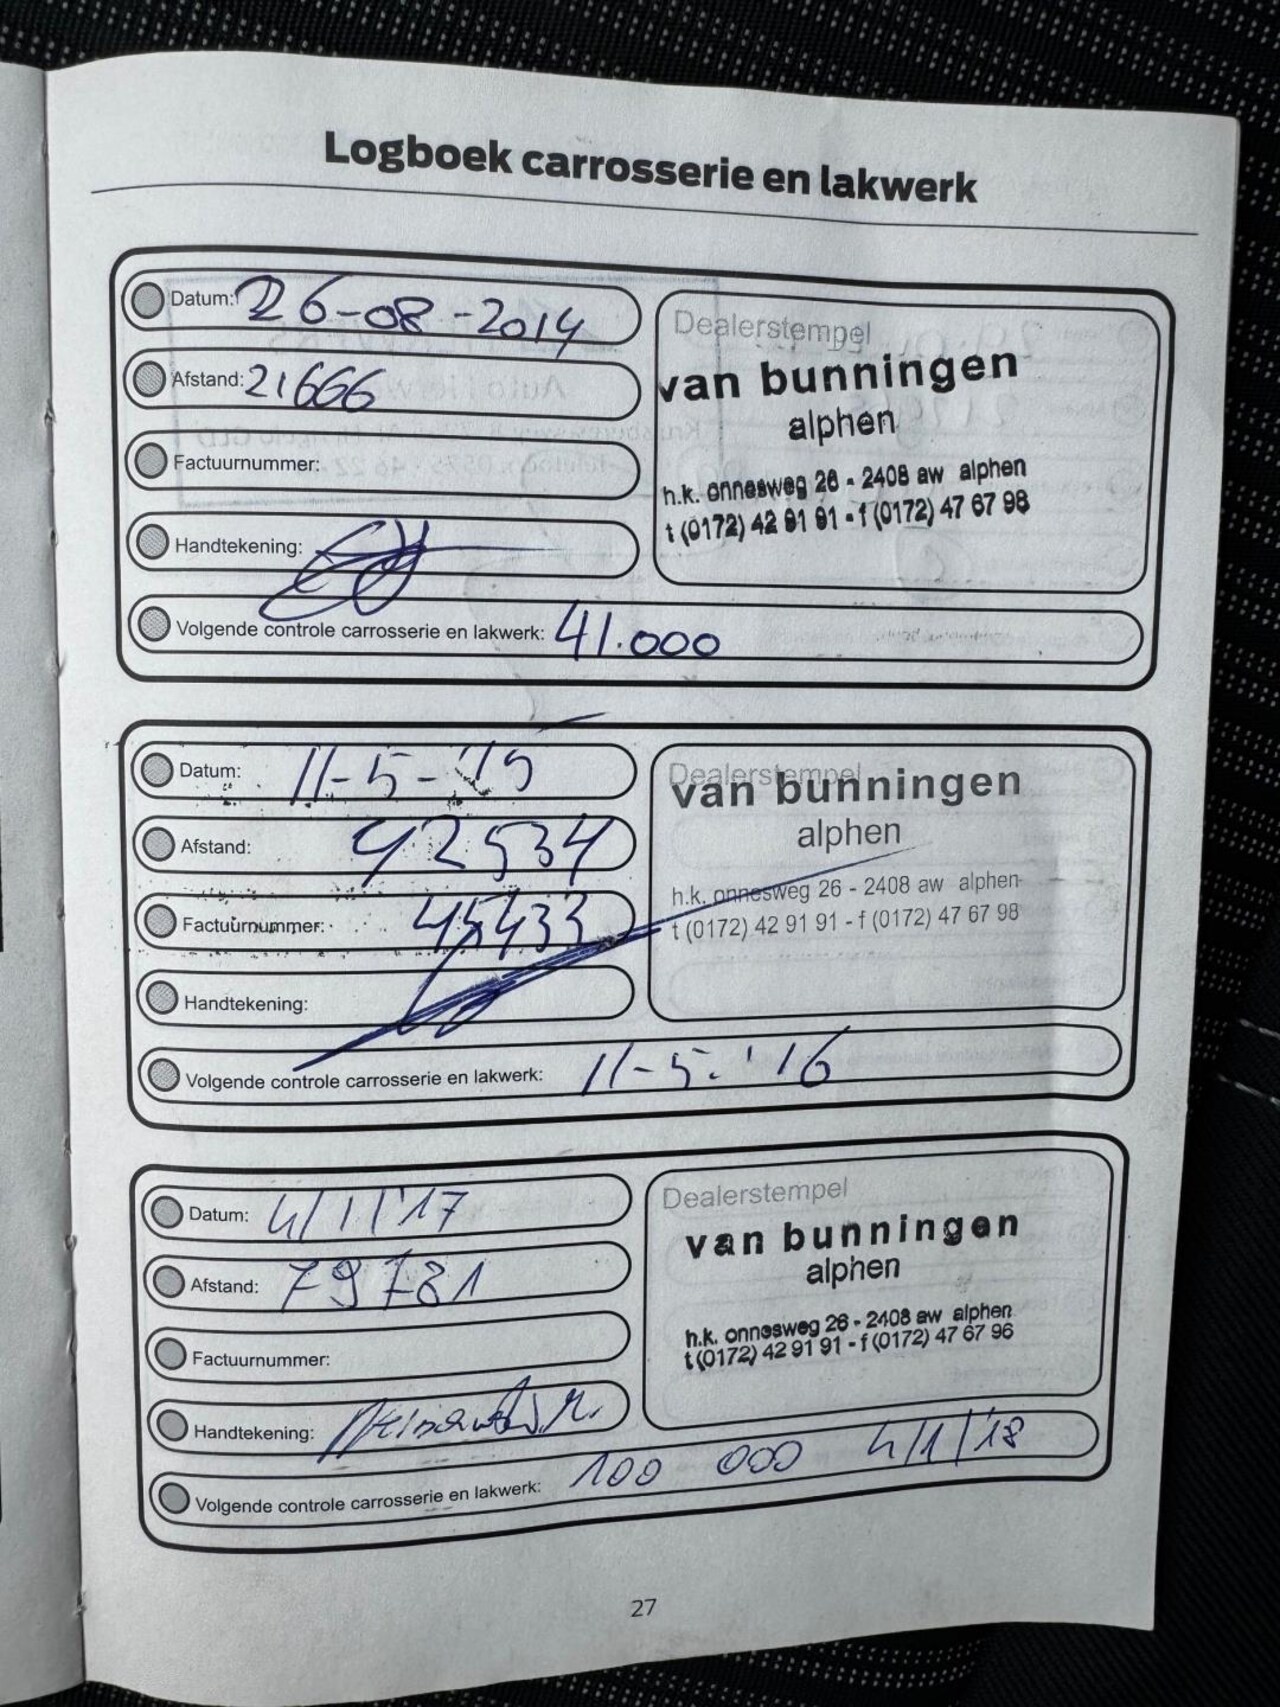 Logboek carrosserie en lakwerk
Datum: 26-08-2014
Afstand: 21666
Factuurnummer:
Handtekening:
Volgende controle carrosserie en lakwerk: 41.000
Dealerstempel
van bunningen
alphen
h.k. onnesweg 26 - 2408 aw alphen
t (0172) 42 91 91 - f (0172) 47 67 98
Datum: 11-5-'15
Afstand: 42534
Factuurnummer: 45433
Handtekening:
Volgende controle carrosserie en lakwerk: 11-5.'16
Dealerstempel
van bunningen
alphen
h.k. onnesweg 26 - 2408 aw alphen
t (0172) 42 91 91 - f (0172) 47 67 98
Datum: 4/1/'17
Afstand: 79781
Factuurnummer:
Handtekening:
Volgende controle carrosserie en lakwerk: 100 000 4/1/'18
Dealerstempel
van bunningen
alphen
h.k. onnesweg 26 - 2408 aw alphen
t (0172) 42 91 91 - f (0172) 47 67 96
27